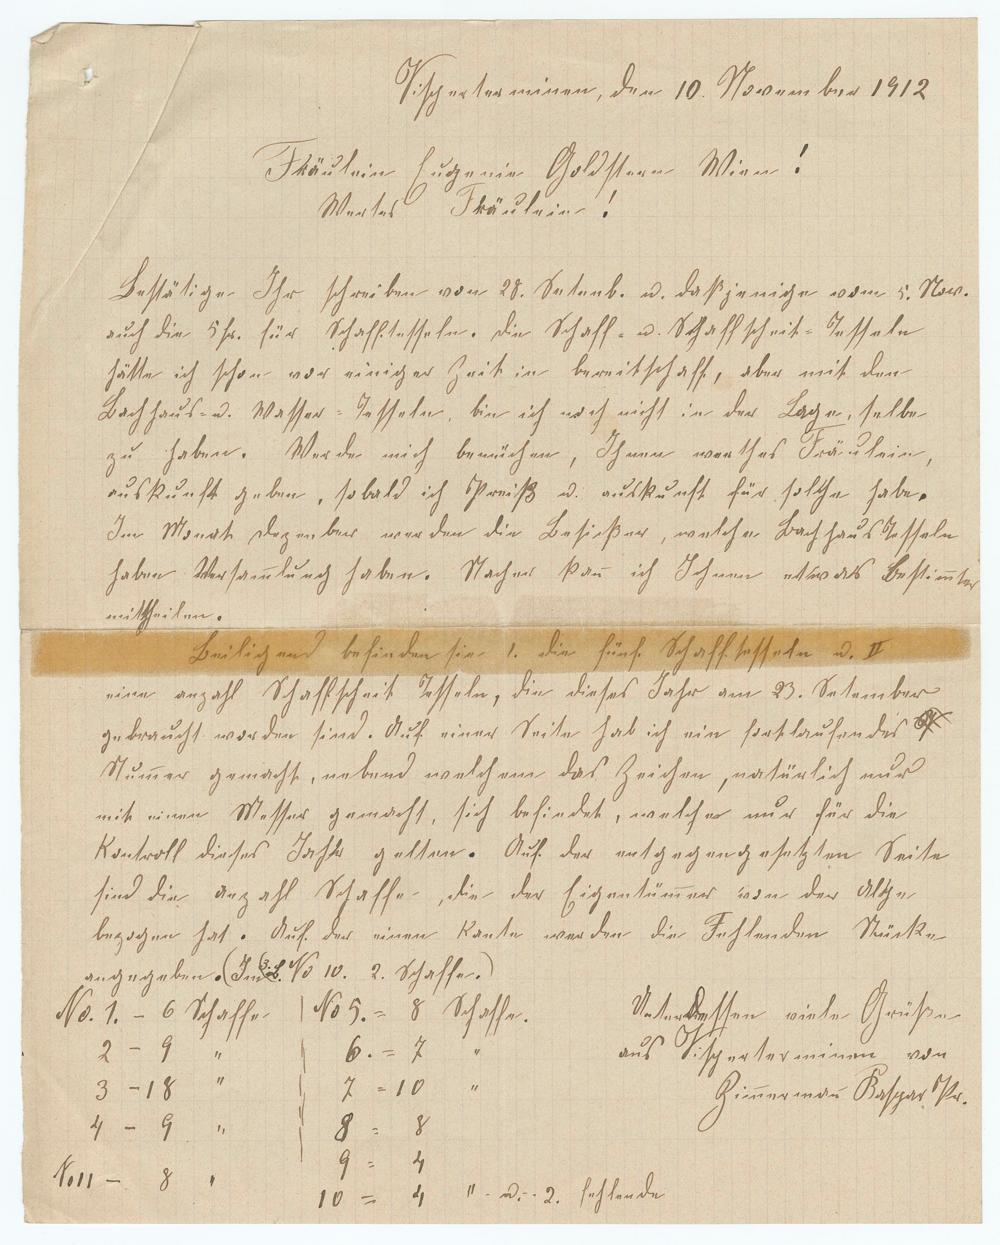 Visperterminen, den 10. November 1912
Fräulein Eugenie Goldstern Wien!
Wertes Fräulein!
Bestätige Ihr schreiben vom 28. Setenb. u. daßjenige vom 5. Nov.
auch die 5 fr. für Schafftesseln. die Schaff- u. Schaffscheit-Tesseln
hätte ich schon vor einiger Zeit in bereitschaft, aber mit den
Bachhaus- u. Wasser-Tesseln, bin ich noch nicht in der Lage, selbe
zu haben. Werde mich bemühen, Ihnen werthes Fräulein,
auskunft geben, sobald ich Preiß u. auskunft für solche habe.
Im Monat Dezember werden die Besitzer, welche Bachhaus Tesseln
haben Versam̄lung haben. Nacher kan̄ ich Ihnen etwas Bestim̄ter
mittheilen.
Beiligend befinden sie 1. die fünf Schafftesseln u. II
eine anzahl Schaffscheit Tesseln, die dieses Jahr am 23. Setember
gebraucht worden sind. Auf einer Seite hab ich ein fortlaufendes
Num̄er gemacht, nebend welchem das Zeichen, natürlich nur
mit einen Messer gemacht, sich befindet, welche nur für die
Kontroll dieses Jahr gelten. Auf der entgegengesetzten Seite
sind die anzahl Schaffe, die der Eigentüm̄er von der Alpe
bezogen hat. Auf der einen Kante werden die Fehlenden Stücke
angegeben. (Im z.B. No 10. 2. Schaffe.)
No. 1. – 6 Schaffe | No 5. = 8 Schaffe.
2 – 9 " 6. = 7 "
3 – 18 " 7 = 10 "
4 – 9 " 8 = 8
9 = 4
No 11 – 8 " 10 = 4 " – u. – 2. fehlende
Unterdessen viele Grüße
aus Visperterminen von
Zim̄erman̄ Kaspar Pr.